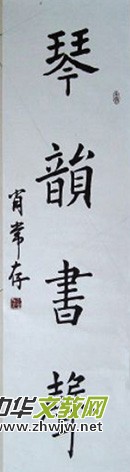 琴韻書聲
肖常存
中华文教网
www.zhwjw.net